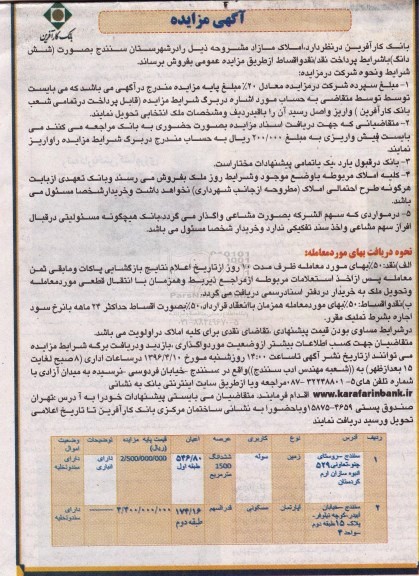 آگهی مزایده
بانک کارآفرین
بانک کارآفرین درنظردارد،املاک مازاد مشروحه ذیل رادرشهرستان سنندج بصورت (شش
دانگ)باشرایط پرداخت نقد/نقدواقساط ازطریق مزایده عمومی بفروش برساند.
شرایط ونحوه شرکت درمزایده:
۱- مبلغ سپرده شرکت درمزایده معادل ۲۰٪ مبلغ پایه مزایده مندرج درآگهی می باشد که می بایست
توسط توسط متقاضی به حساب مورد اشاره دربرگ شرایط مزایده (قابل پرداخت درتمامی شعب
بانک کارآفرین ) واریز واصل رسید آن را باقیدردیف ومشخصات ملک انتخابی تحویل نمایند.
۲- متقاضیانی که جهت دریافت اسناد مزایده بصورت حضوری به بانک مراجعه می کنند می
بایست فیش واریزی به مبلغ ۲۰۰/۰۰۰ ریال به حساب مندرج دربرگ شرایط مزایده راواریز
نمایند
۳- بانک درقبول یارد ،یک یاتمامی پیشنهادات مختاراست.
۴- کلیه املاک مربوطه باوضع موجود وشرایط روز ملک بفروش می رسند وبانک تعهدی ازبابت
هرگونه طرح احتمالی املاک (مطروحه ازجانب شهرداری) نخواهد داشت وخریدارشخصا مسئول می
باشد.
۵- درمواردی که سهم الشرکه بصورت مشاعی واگذار می گردد،بانک هیچگونه مسئولیتی درقبال
افراز سهم مشاعی واخذ سند تفکیکی ندارد وخریدار شخصا مسئول می باشد.
نحوه دریافت بهای موردمعامله:
الف)نقد:۵۰٪بهای مورد معامله ظرف مدت ۱۰ روز ازتاریخ اعلام نتایج بازگشایی پاکات ومابقی ثمن
معامله پس ازاخذ استعلامات مربوطه ازمراجع ذیربط وهمزمان با انتقال قطعی موردمعامله
وتحویل ملک به خریدار در دفتر اسنادرسمی دریافت می گردد.
ب)نقدواقساط:۵۰٪بهای موردمعامله همزمان باانعقاد قرارداد،۵۰٪بصورت اقساط حداکثر ۲۴ ماهه بانرخ سود
اجاره بشرط تملیک مقرر.
درشرایط مساوی بودن قیمت پیشنهادی ،تقاضای نقدی برای کلیه املاک دراولویت می باشد.
متقاضیان جهت کسب اطلاعات بیشتر ازوضعیت موردواگذاری ،بازدید ودریافت برگه شرایط مزایده
می توانند ازتاریخ نشر آگهی تاساعت ۱۴:۰۰ روزشنبه مورخ ۱۳۹۶/۳/۱۰ درساعات اداری (۸صبح لغایت
۱۵ بعدازظهر) به ((شعبه مهندس ادب سنندج))واقع در سنندج -خیابان فردوسی -نرسیده به میدان آزادی یا
شماره تلفن های۵- ۰۸۷-۳۲۲۳۸۸۰۱مراجعه ویا ازطریق سایت اینترنتی بانک به نشانی
www.karafarinbank.ir اقدام فرمایند. متقاضیان می بایستی پیشنهادات خودرا به آدرس :تهران
صندوق پستی ۴۶۵۹-۱۵۸۷۵ویاحضورا به نشانی ساختمان مرکزی بانک کارآفرین تا تاریخ اعلامی
تحویل ورسید دریافت نمایند
ردیف آدرس نوع کاربری عرصه اعیان قیمت پایه مزایده (ریال) توضیحات وضعیت اموال
۱ سنندج -روستای زمین سوله ششدانگ 1500 مترمربع ۵۴۶/۸۰ طبقه اول 2/500/000/000 دارای دارای سندوتخلیه
انبوه سازان ارم کردستان
۲ سنندج -خیابان آبیدر-کوچه نیلوفر- پلاک ۱۵طبقه دوم -واحد ۴ آپارتمان مسکونی قدرالسهم ۱۷۴/۱۶ طبقه دوم ------ دارای سندوتخلیه